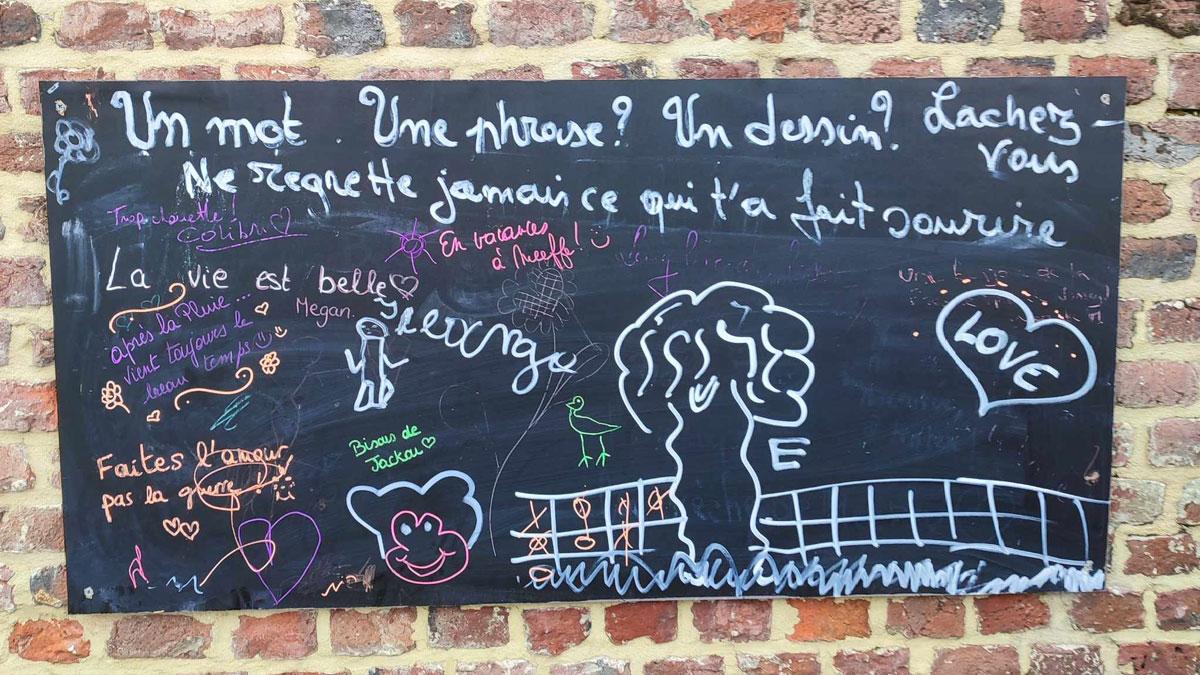 Un mot. Une phrase? Un dessin? Lachez-
vous
Ne regrette jamais ce qui t'a fait sourire
Trop chouette!
Colibri
En vacances
à Meeffe!
La vie est belle
Megan.
après la Pluie...
vient toujours le
beau temps
LOVE
Bisous de
Jackai
E
Faites l'amour
pas la guerre!